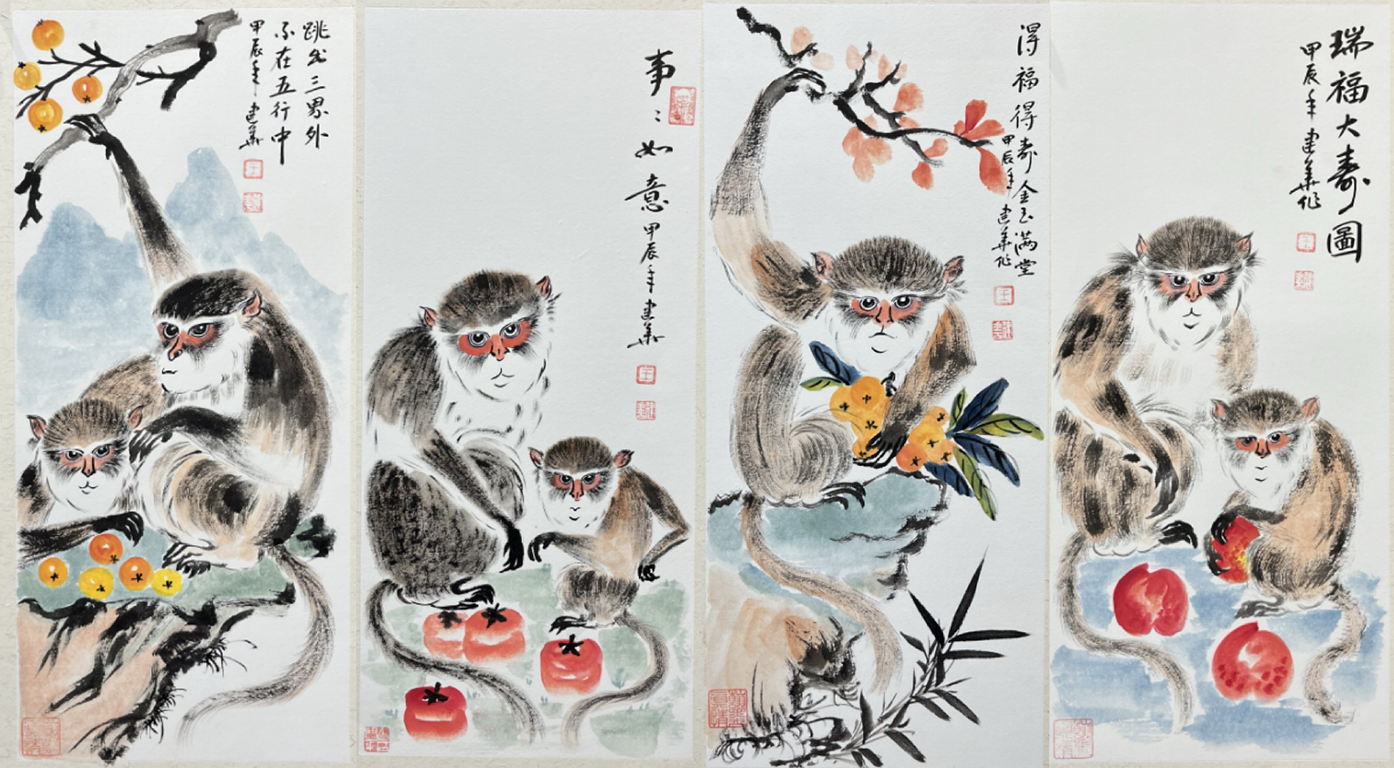 跳出三界外
不在五行中
甲辰年 建华
事：如意
甲辰年 建华
得福得寿金玉满堂
甲辰年 建华作
瑞福大寿圖
甲辰年 建华作